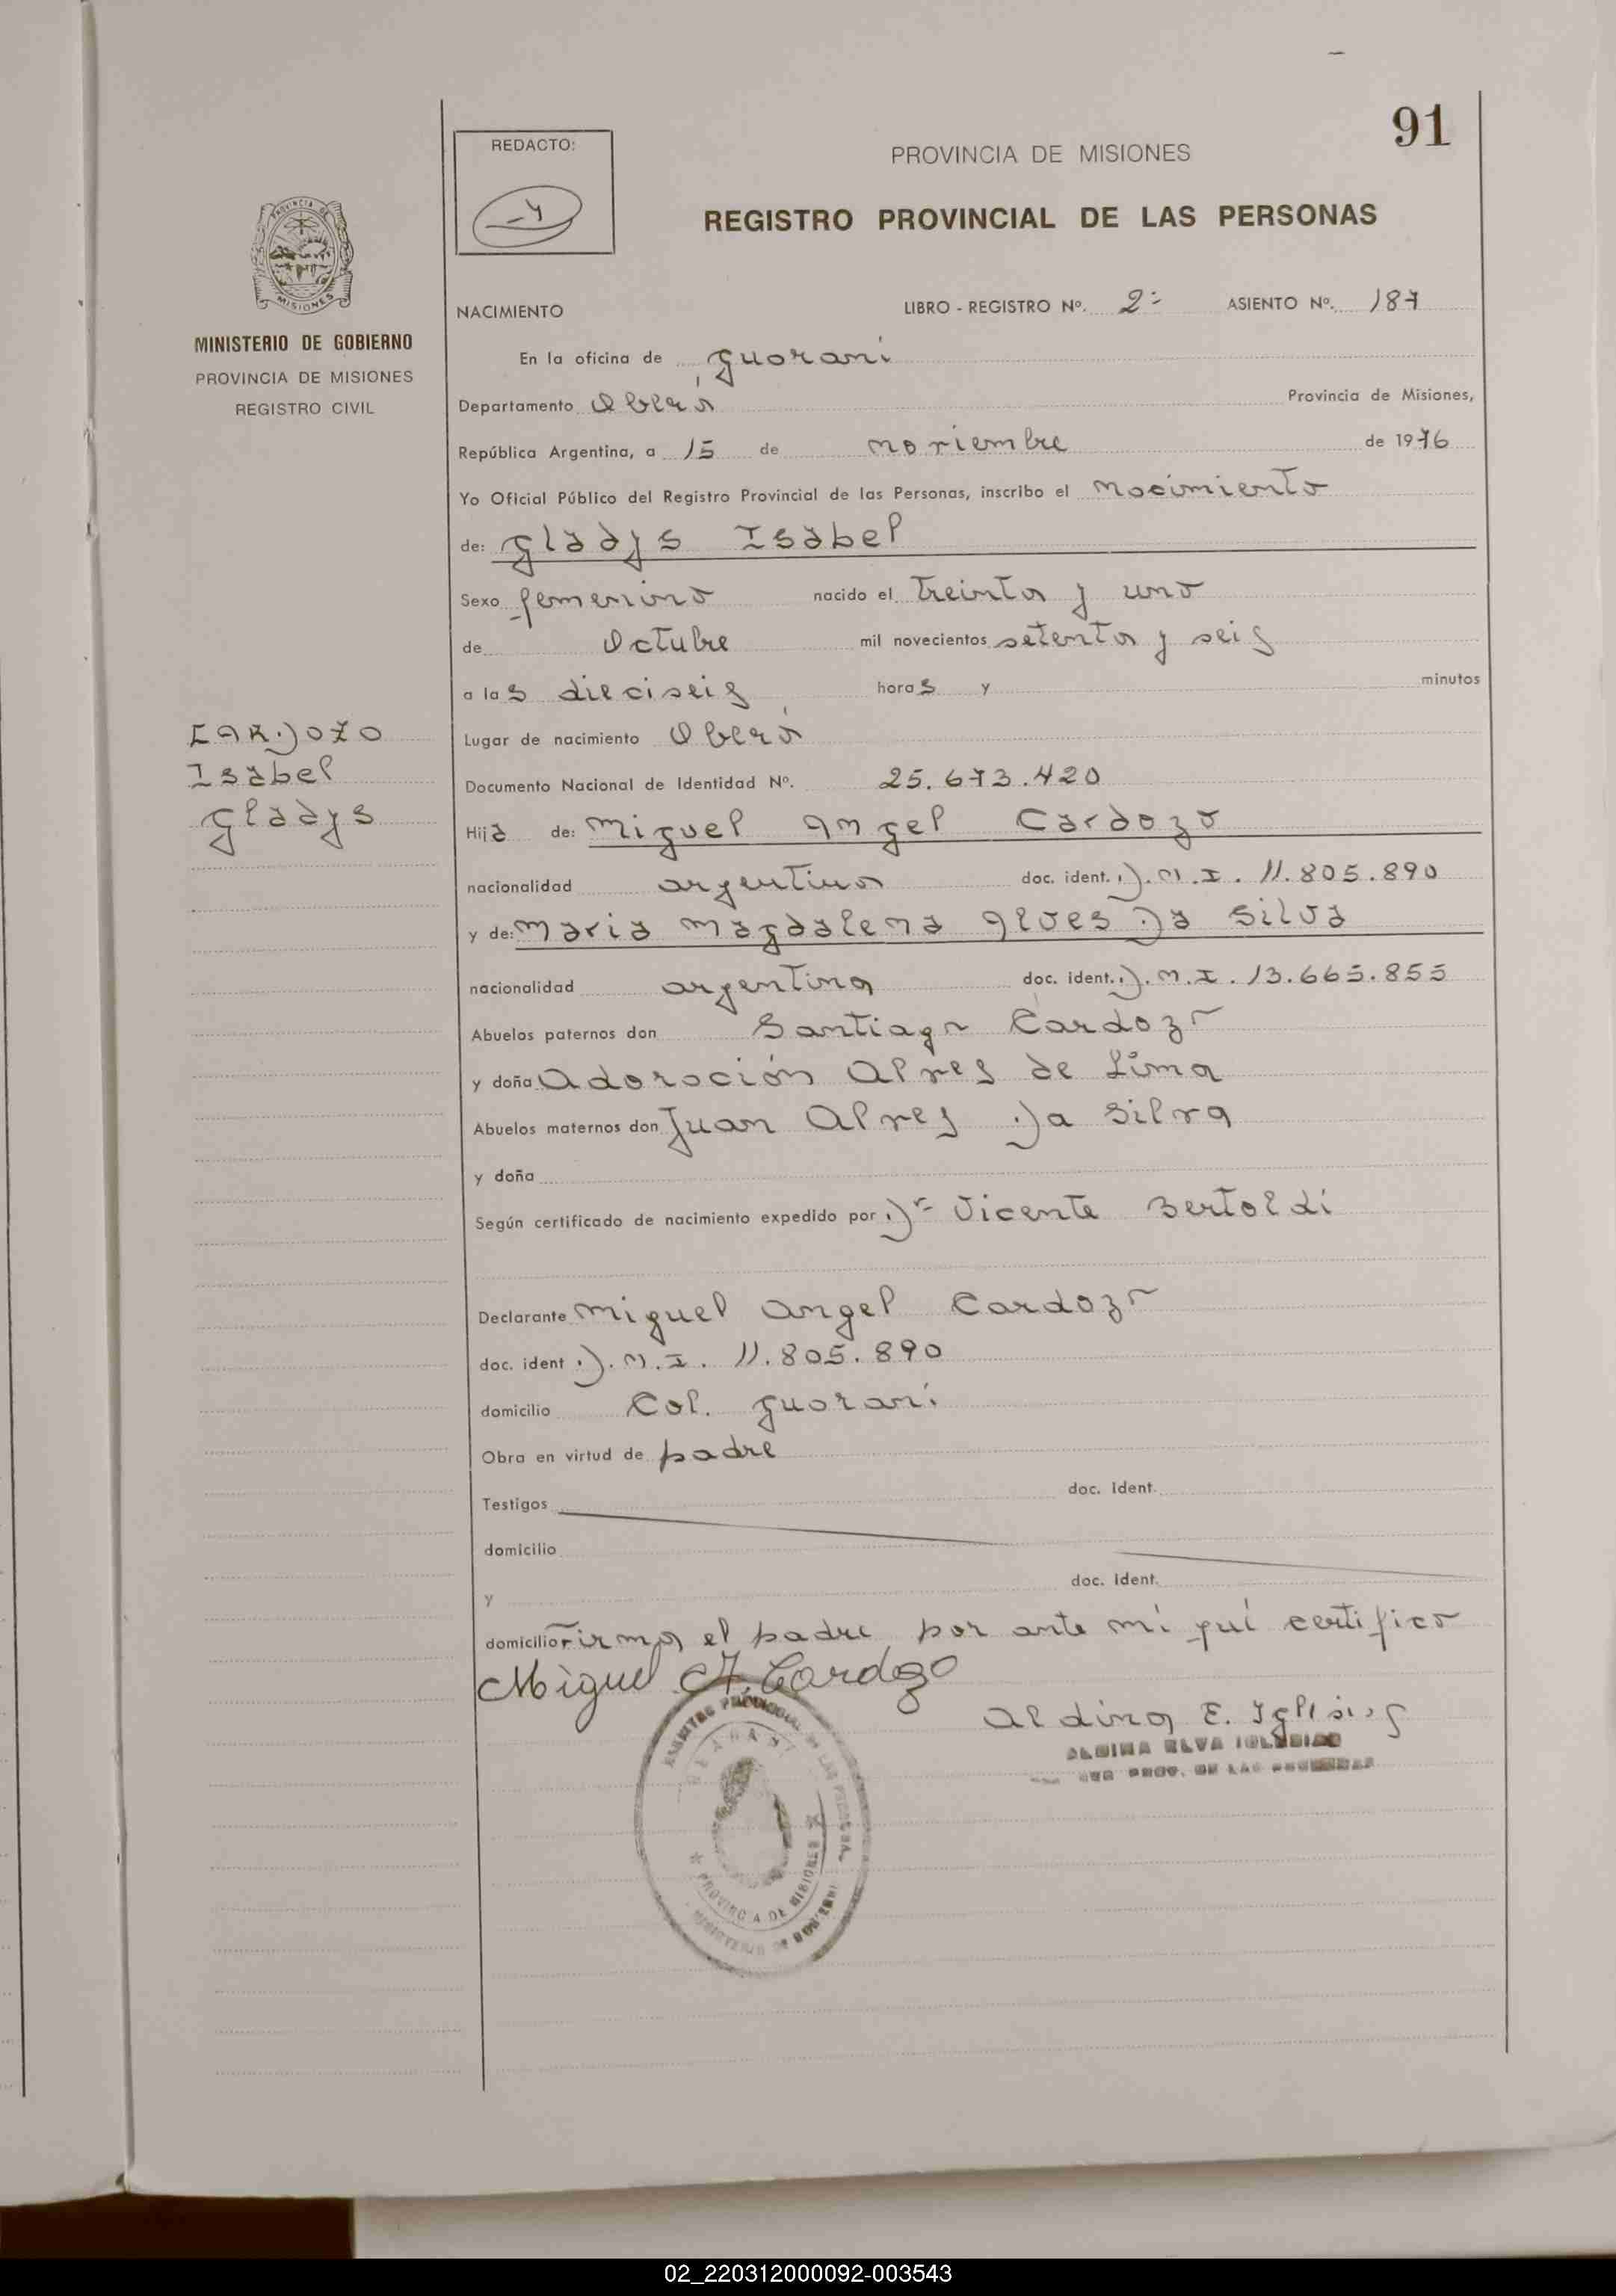 91
REDACTO:
PROVINCIA DE MISIONES
REGISTRO PROVINCIAL DE LAS PERSONAS
PROVINCIA DE
MISIONES
MINISTERIO DE GOBIERNO
PROVINCIA DE MISIONES
REGISTRO CIVIL
NACIMIENTO LIBRO - REGISTRO Nº. 2º ASIENTO Nº. 187
En la oficina de Guaraní
Departamento Oberá Provincia de Misiones,
República Argentina, a 15 de noviembre de 1976
Yo Oficial Público del Registro Provincial de las Personas, inscribo el nacimiento
de: Gladys Isabel
Sexo femenino nacido el treinta y uno
de Octubre mil novecientos setenta y seis
a las dieciseis horas y minutos
CARDOZO
Isabel
Gladys
Lugar de nacimiento Oberá
Documento Nacional de Identidad Nº. 25.673.420
Hija de: Miguel Angel Cardozo
nacionalidad argentina doc. ident. D.M.I. 11.805.890
y de: Maria Magdalena Alves Da Silva
nacionalidad argentina doc. ident. D.M.I. 13.665.855
Abuelos paternos don Santiago Cardozo
y doña Adoración Alves de Lima
Abuelos maternos don Juan Alves Da Silva
y doña
Según certificado de nacimiento expedido por Dr Vicente Bertoldi
Declarante Miguel Angel Cardozo
doc. ident D.M.I. 11.805.890
domicilio Col. Guaraní
Obra en virtud de padre
Testigos doc. ident.
domicilio
y doc. ident.
domicilio Firma el padre por ante mí qui certifico
Miguel A. Cardozo
Aldina E. Iglesias
ALDINA ELVA IGLESIAS
PROV. DE LAS PERSONAS
REGISTRO PROVINCIAL DE LAS PERSONAS
GUARANI
PROVINCIA DE MISIONES
MINISTERIO DE GOBIERNO
02_220312000092-003543